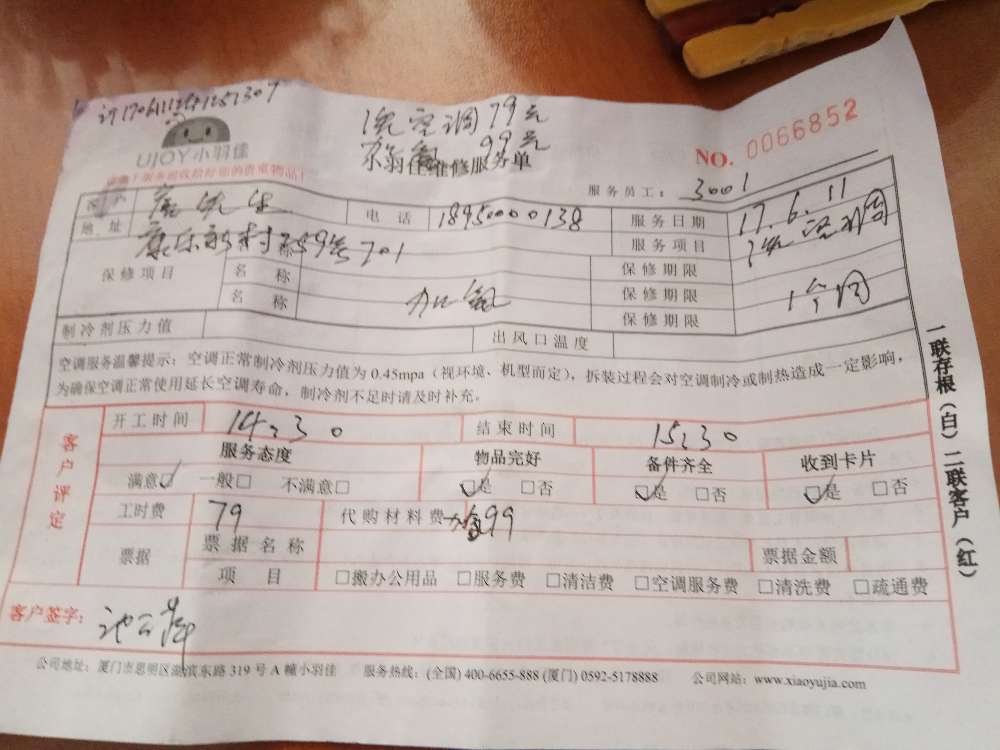 洗空调79元
加氟 99元
UJOY小羽佳
小羽佳维修服务单
NO. 0066852
服务员工: 3001
客户 电话 18950000138 服务日期 17.6.11
地址 康乐新村 59号701 服务项目 洗空调
保修项目 名称 保修期限
名称 加氟 保修期限 1个月
保修期限
制冷剂压力值 出风口温度
空调服务温馨提示：空调正常制冷剂压力值为 0.45mpa（视环境、机型而定），拆装过程会对空调制冷或制热造成一定影响，
为确保空调正常使用延长空调寿命，制冷剂不足时请及时补充。
客户评定
开工时间 14:30 结束时间 15:30
服务态度 物品完好 备件齐全 收到卡片
满意☑ 一般□ 不满意□ ☑是 □否 ☑是 □否 ☑是 □否
工时费 79 代购材料费 99
票据 票据名称 票据金额
项目 □搬办公用品 □服务费 □清洁费 □空调服务费 □清洗费 □疏通费
客户签字:
公司地址：厦门市思明区湖滨东路 319 号 A 幢小羽佳 服务热线：(全国) 400-6655-888 (厦门) 0592-5178888 公司网站：www.xiaoyujia.com
一联存根（白）二联客户（红）